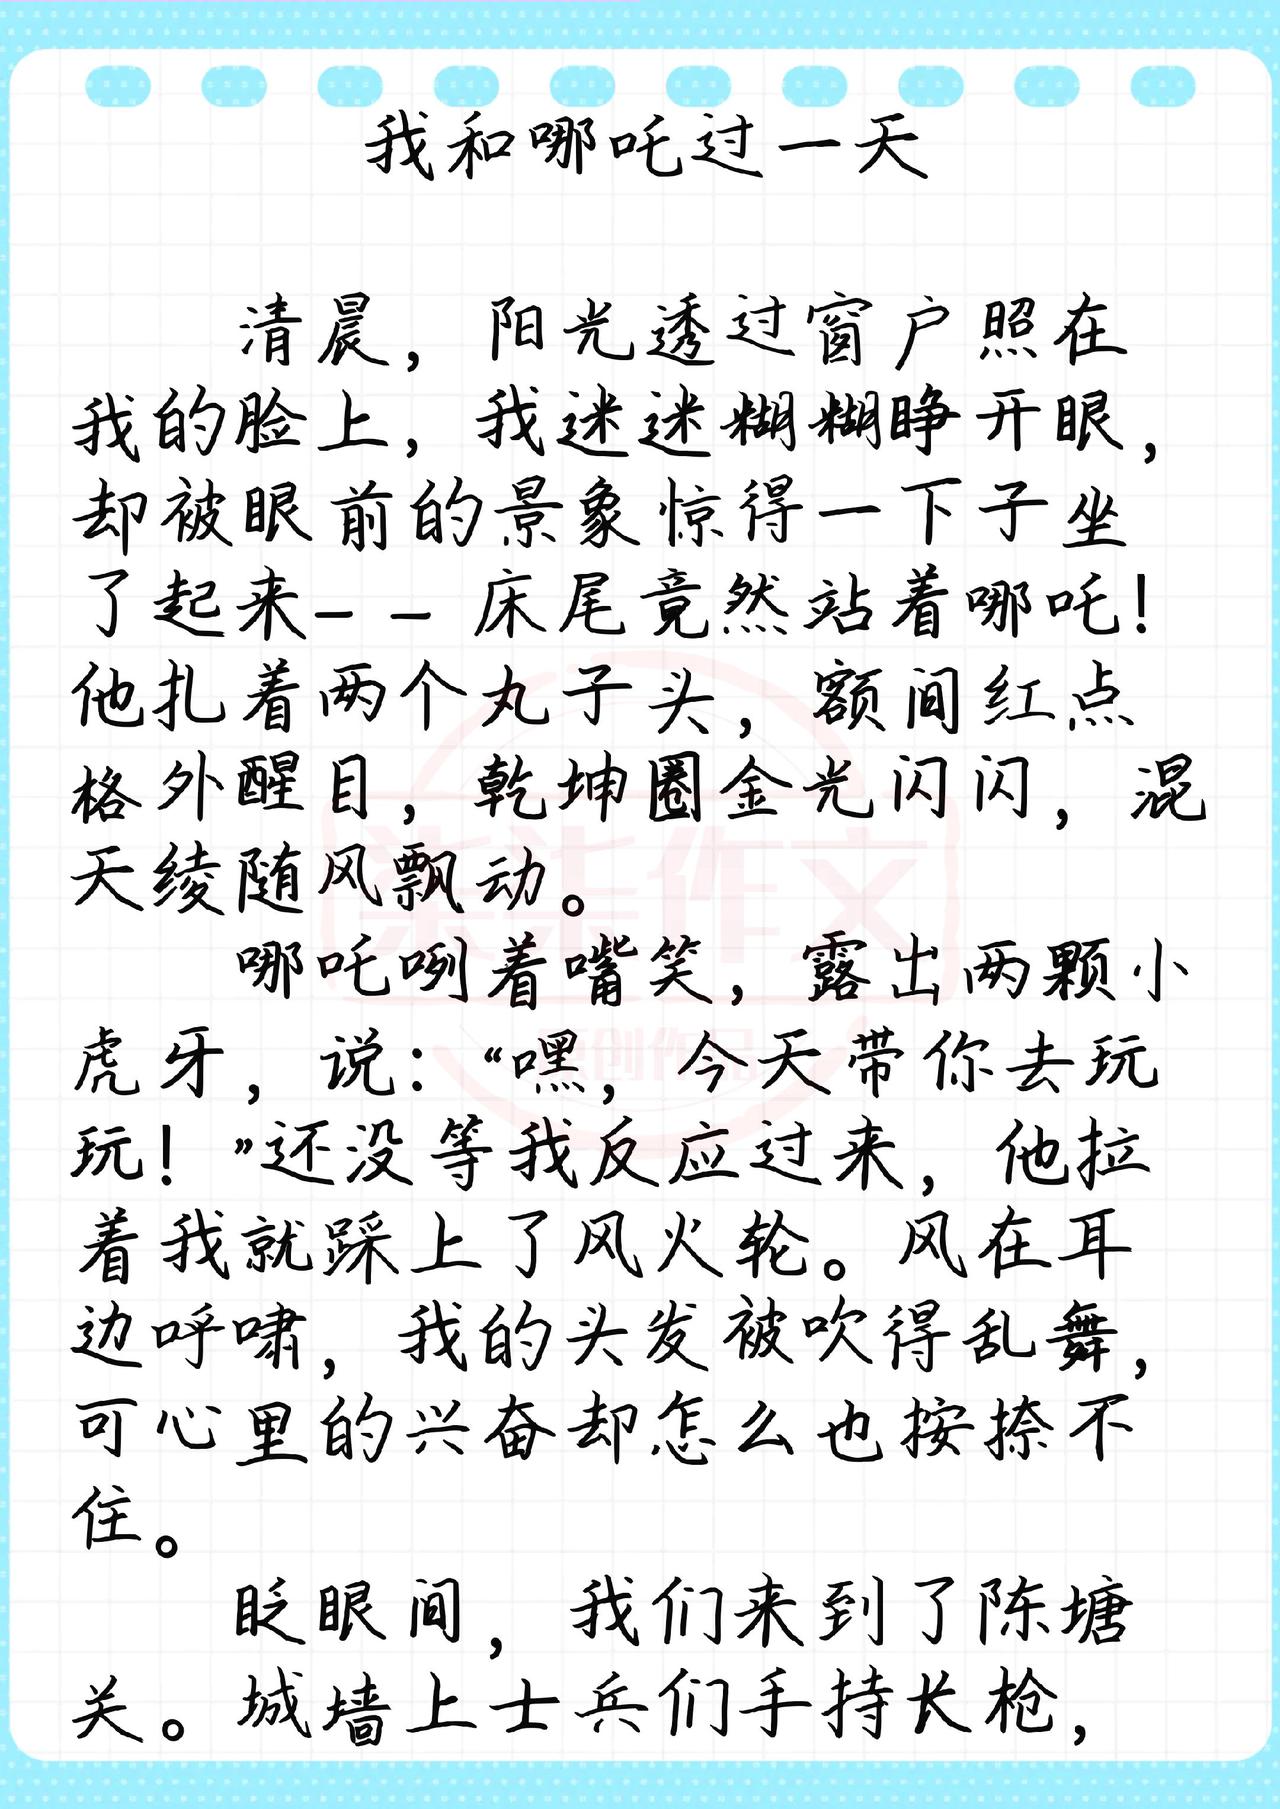 我和哪吒过一天
清晨，阳光透过窗户照在
我的脸上，我迷迷糊糊睁开眼，
却被眼前的景象惊得一下子坐
了起来——床尾竟然站着哪吒！
他扎着两个丸子头，额间红点
格外醒目，乾坤圈金光闪闪，混
天绫随风飘动。
哪吒咧着嘴笑，露出两颗小
虎牙，说：“嘿，今天带你去玩
玩！”还没等我反应过来，他拉
着我就踩上了风火轮。风在耳
边呼啸，我的头发被吹得乱舞，
可心里的兴奋却怎么也按捺不
住。
眨眼间，我们来到了陈塘
关。城墙上士兵们手持长枪，
柒柒作文
原创作品